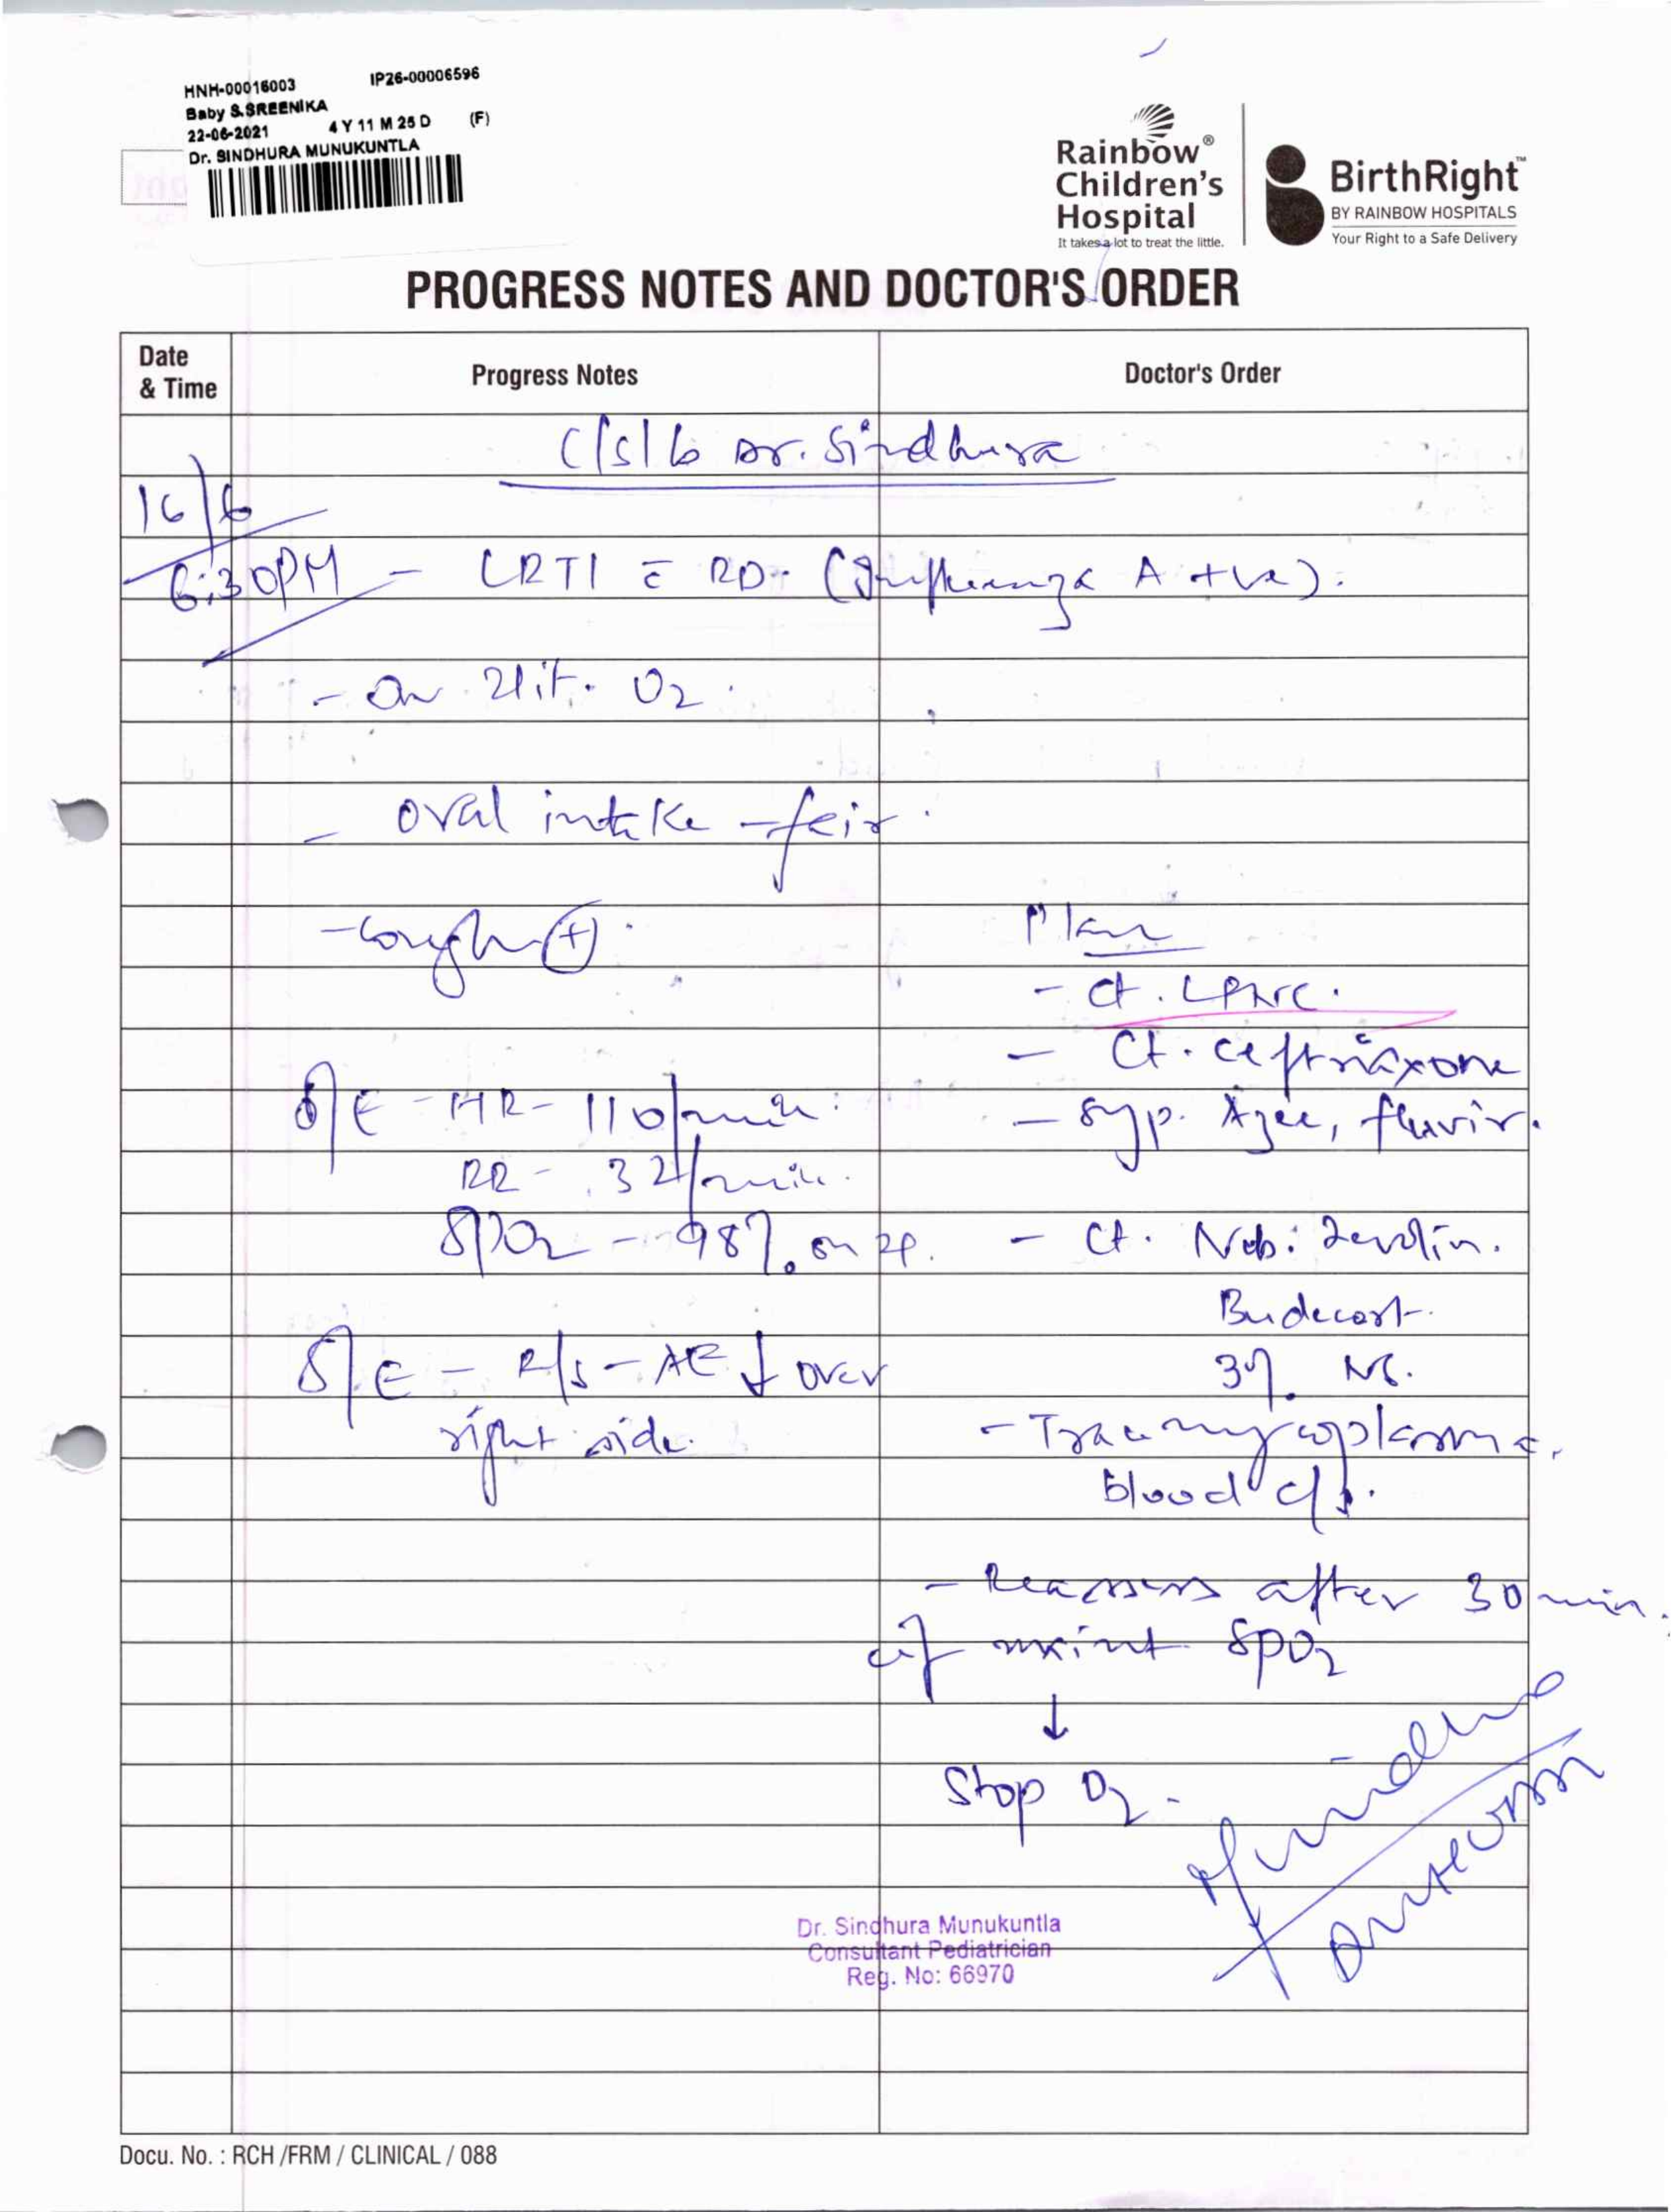 HNH-00016003 IP26-00006596
Baby S.SREENIKA
22-06-2021 4 Y 11 M 25 D (F)
Dr. SINDHURA MUNUKUNTLA
Rainbow® Children's Hospital
It takes a lot to treat the little.
BirthRight™
BY RAINBOW HOSPITALS
Your Right to a Safe Delivery
PROGRESS NOTES AND DOCTOR'S ORDER
Date & Time Progress Notes Doctor's Order
C/S/b Dr. Sindhura
16/6
6:30PM - LRTI c̄ RD. (Influenza A +ve).
- On 2lit. O2.
- oral intake - fair.
- Cough (+).
Plan
- Ct.
- Ct. ceftriaxone
O/E - HR - 110/min.
- Syp. Azee, fluvir.
RR - 32/min.
SPO2 - 98% on 2l.
- Ct. Neb: Levolin.
Budecort.
3% NS.
S/E - R/S - AE ↓ over
right side.
- Trace mycoplasma,
blood c/s.
- Reassess after 30 min.
if maint SPO2
↓
Stop O2.
Dr. Sindhura Munukuntla
Consultant Pediatrician
Reg. No: 66970
Docu. No. : RCH /FRM / CLINICAL / 088